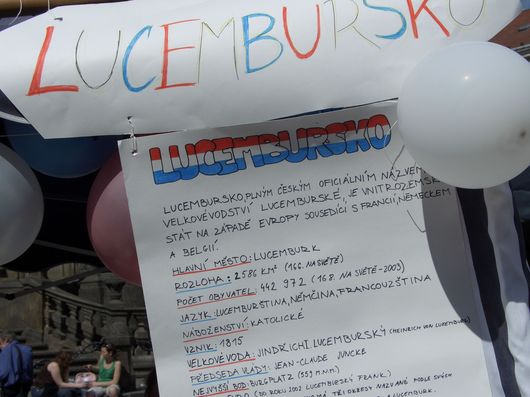 LUCEMBURSKO
LUCEMBURSKO
LUCEMBURSKO, PLNÝM ČESKÝM OFICIÁLNÍM NÁZVEM
VELKOVÉVODSTVÍ LUCEMBURSKÉ, JE VNITROZEMSKÝ
STÁT NA ZÁPADĚ EVROPY SOUSEDÍCÍ S FRANCIÍ, NĚMECKEM
A BELGIÍ.
HLAVNÍ MĚSTO: LUCEMBURK
ROZLOHA: 2586 KM² (166. NA SVĚTĚ)
POČET OBYVATEL: 442 972 (168. NA SVĚTĚ - 2003)
JAZYK: LUCEMBURŠTINA, NĚMČINA, FRANCOUZŠTINA
NÁBOŽENSTVÍ: KATOLICKÉ
VZNIK: 1815
VELKOVÉVODA: JINDŘICH I. LUCEMBURSKÝ (HEINRICH VON LUXEMBURG)
PŘEDSEDA VLÁDY: JEAN-CLAUDE JUNCKE
NEJVYŠŠÍ BOD: BURGPLATZ (559 M.N.M.)
EURO (DO ROKU 2002 LUCEMBURSKÝ FRANK)
TŘI OKRESY NAZVANÉ PODLE SVÝCH
LUCEMBURK.